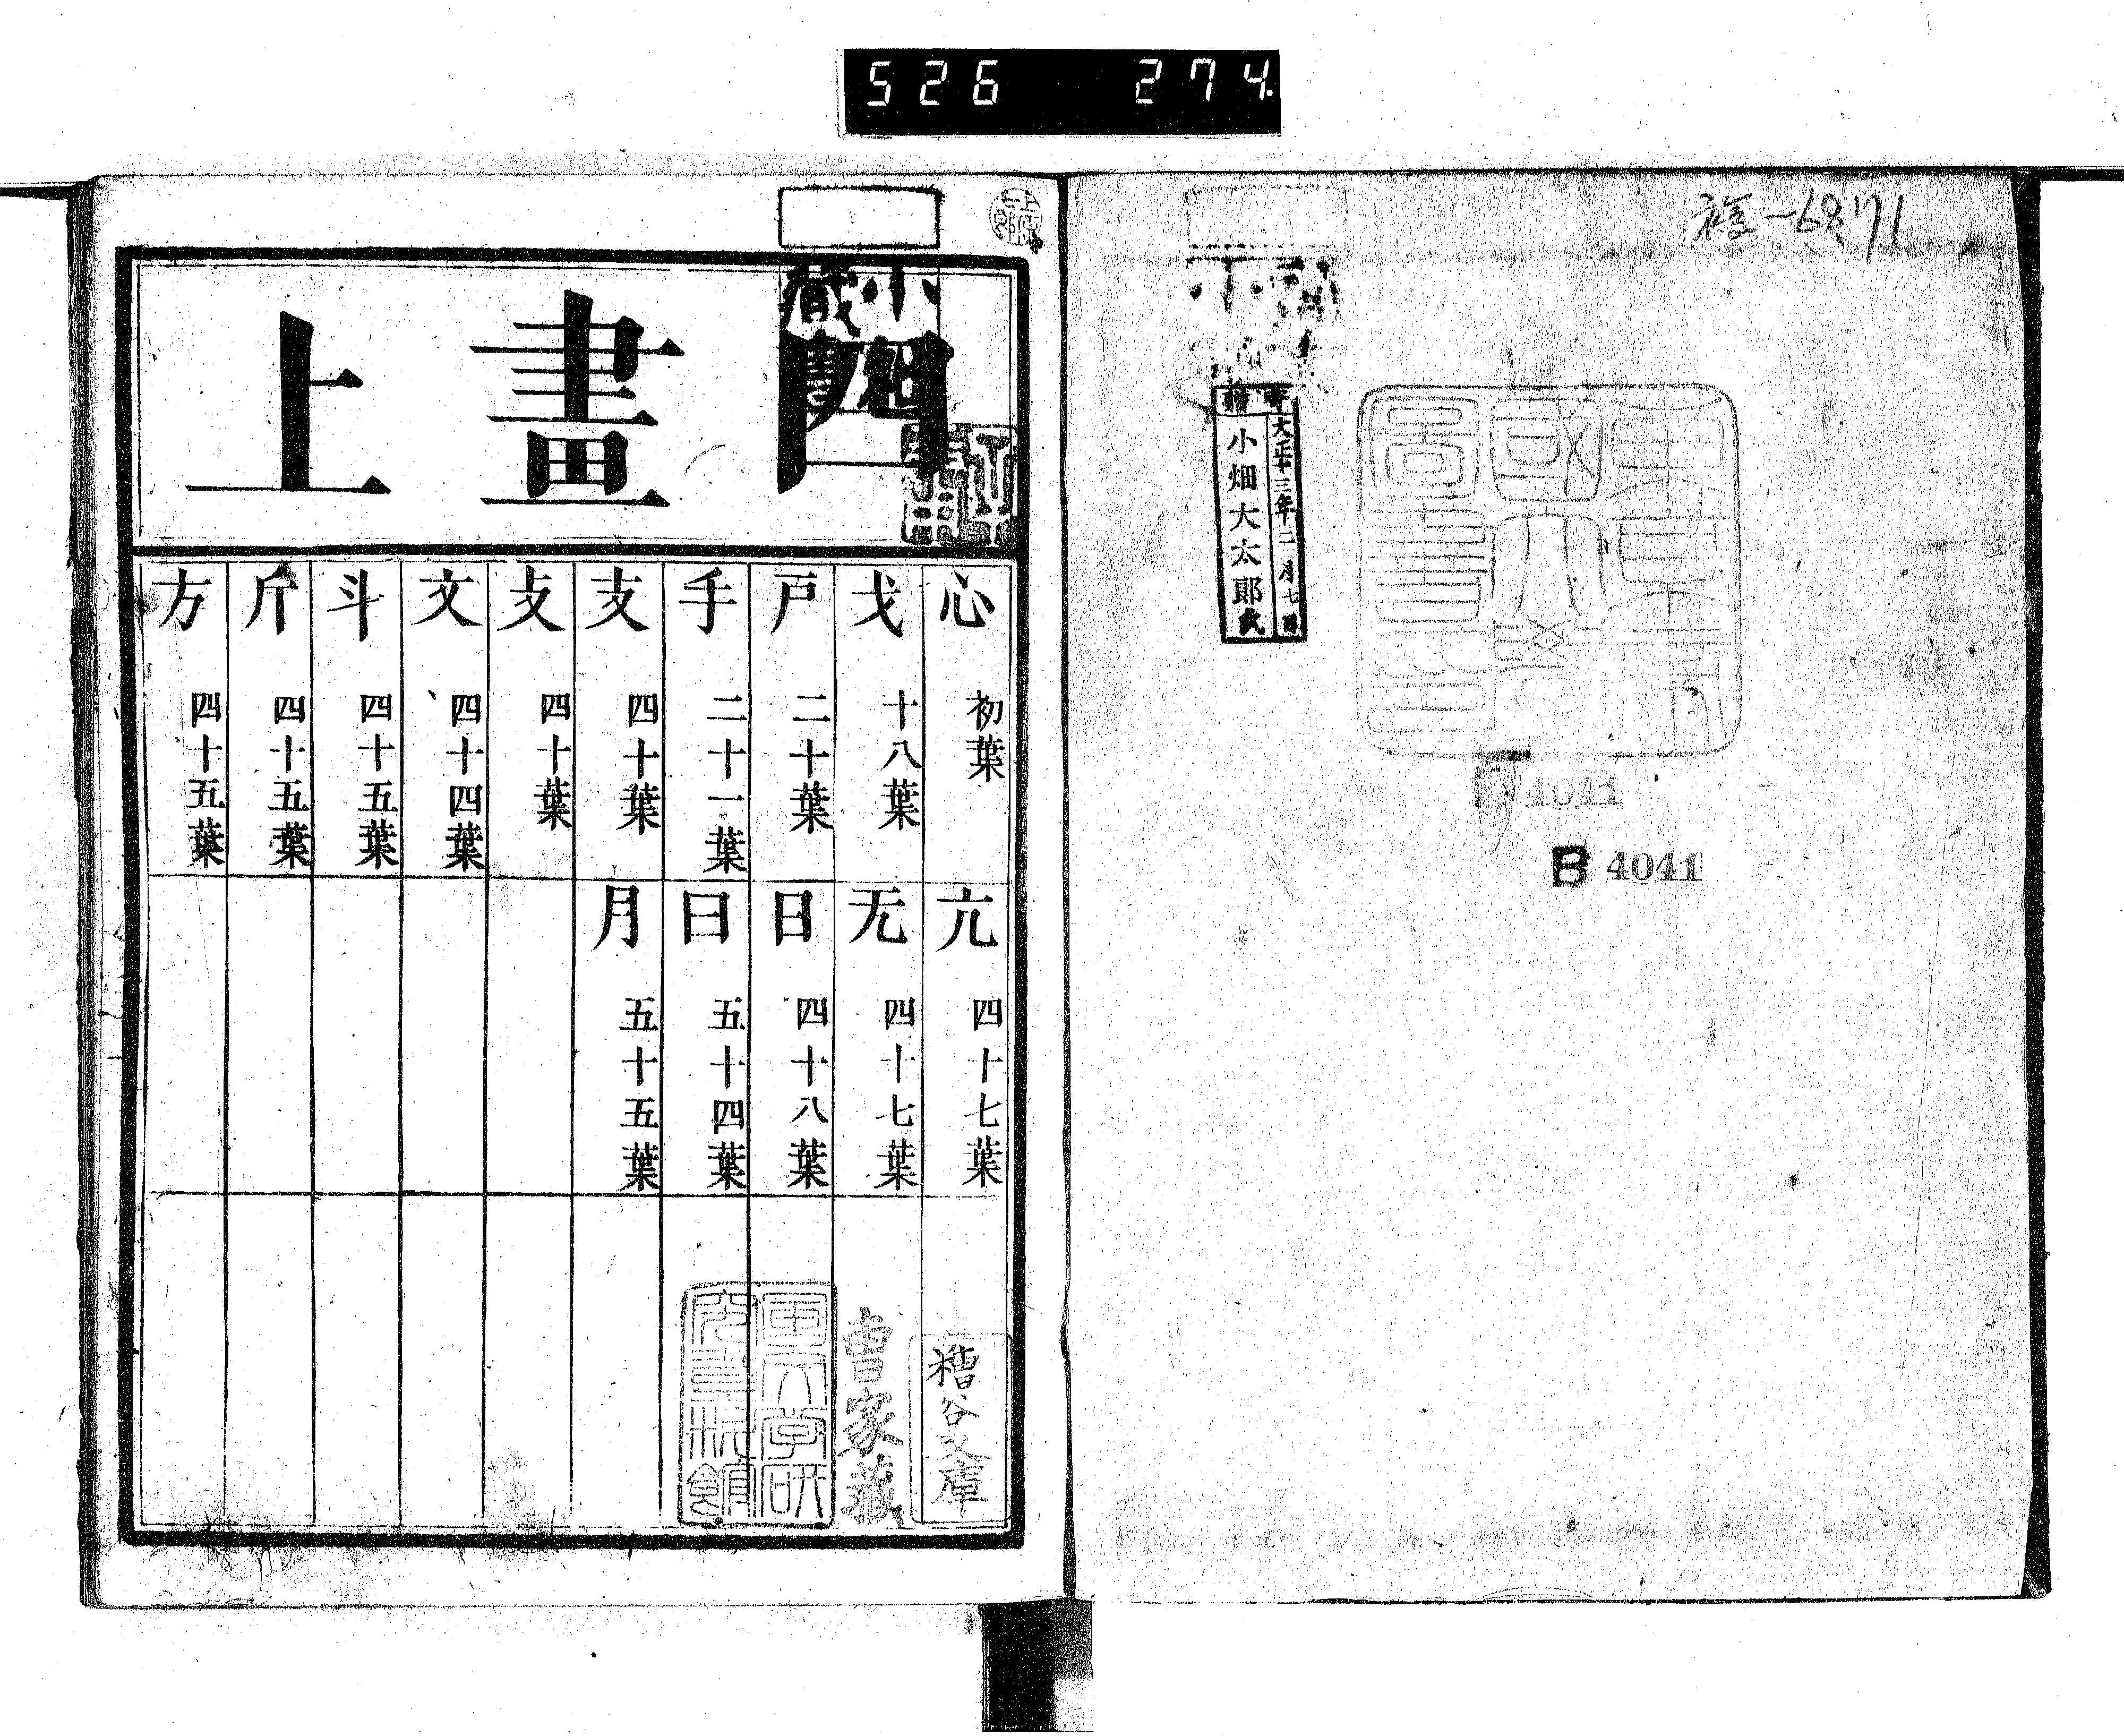 526 274
複-6871
寄贈
大正十三年二月七日
小畑大太郎氏
4041
B 4041
小畑
藏書
四畫上
心 初葉
戈 十八葉
戸 二十葉
手 二十一葉
支 四十葉
攴 四十葉
文 四十四葉
斗 四十五葉
斤 四十五葉
方 四十五葉
亢 四十七葉
无 四十七葉
日 四十八葉
曰 五十四葉
月 五十五葉
糟谷文庫
曹家藏